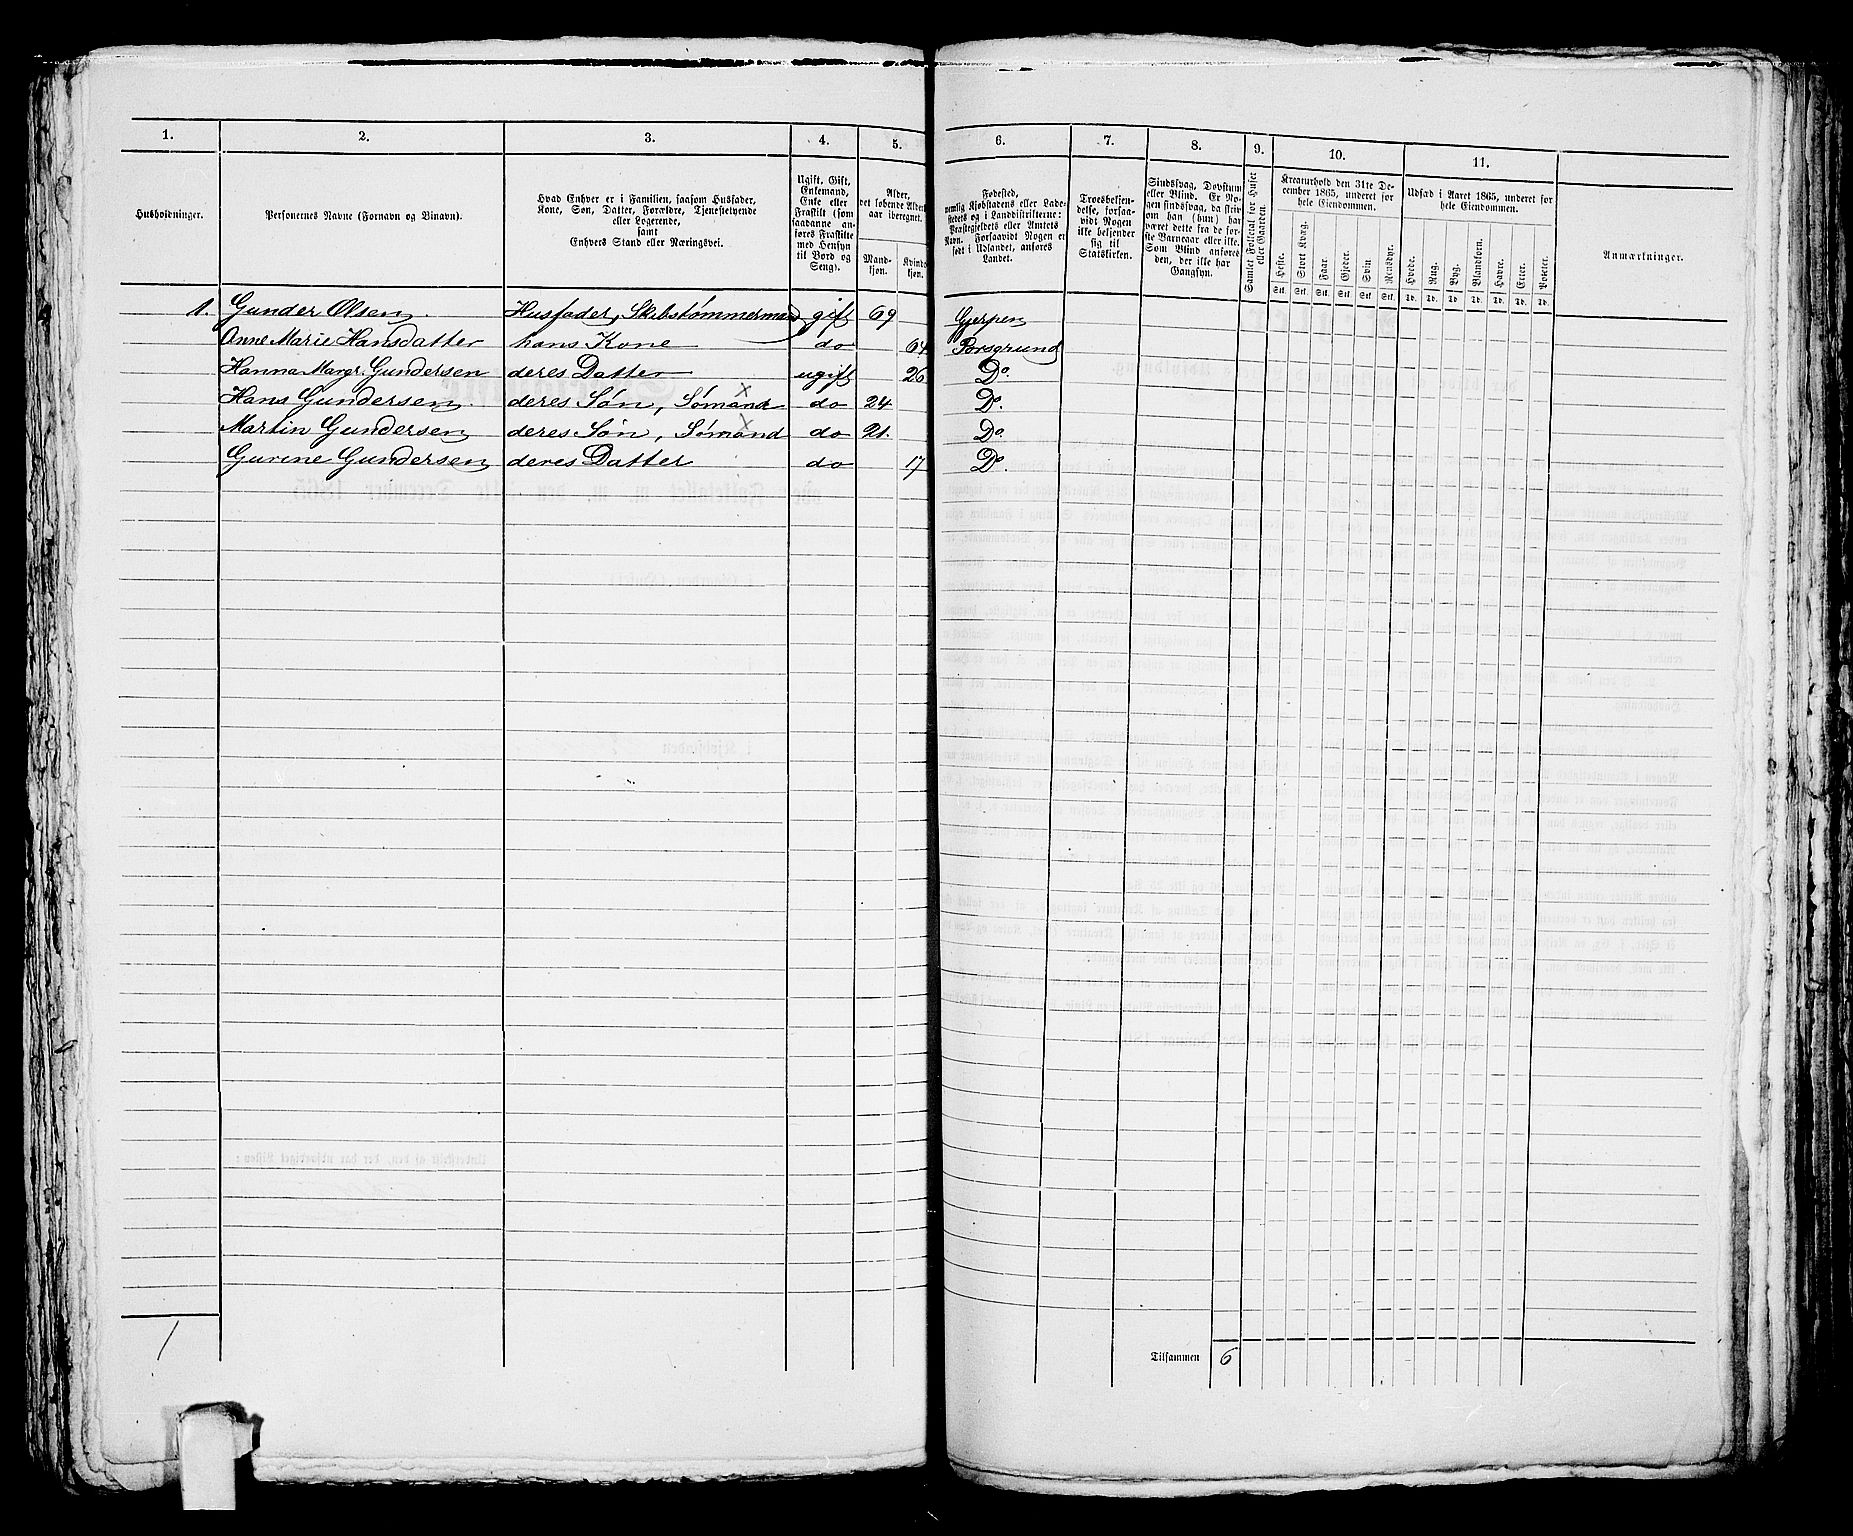 1. 2. 3. 4. 5. 6. 7. 8. 9. 10. 11.
Husholdninger.
Personernes Navne (Fornavn og Tilnavn).
Hvad Enhver er i Familien, saasom Husfader,
Kone, Søn, Datter, Forældre, Tjenestetyende
eller Logerende,
samt
Enhvers Stand eller Næringsvei.
Ugift, Gift,
Enkemand,
Enke eller
Fraskilt (som
saadanne an-
føres Fraskilte
med Hensyn
til Bord og
Seng).
Alder,
det løbende Alders-
aar iberegnet.
Mand-
kjøn.
Kvinde-
kjøn.
Fødested,
nemlig Kjøbstadens eller Lade-
stedets og i Landdistrikterne:
Præstegjeldets eller Amtets
Navn. Forsaavidt Nogen er
født i Udlandet, anføres
Landet.
Troesbekjen-
delse, forsaa-
vidt Nogen
ikke bekjender
sig til
Statskirken.
Sindssvag, Døvstum
eller Blind. Er No-
gen sindssvag, da skriv
om han (hun) har
været dette fra de før-
ste Barneaar eller ikke.
Som Blind anføres
den, der ikke har
Gangsyn.
Samlet Folketal for Huset
eller Gaarden.
Kreaturhold den 31te De-
cember 1865, underet for
hele Eiendommen.
Heste. Stort Kvæg. Faar. Gjeder. Svin Rensdyr.
Stk. Stk. Stk. Stk. Stk. Stk.
Udsæd i Aaret 1865, underet for
hele Eiendommen.
Hvede. Rug. Byg. Blandkorn. Havre. Erter. Poteter.
Td. Td. Td. Td. Td. Td. Td.
Anmærkninger.
1. Gunder Olsen. Husfader, Skibstømmermand gift 69 Gjerpen
Anne Marie Hansdatter hans Kone do 64 Porsgrund
Hanna Margr. Gundersen deres Datter ugift 26 Do.
Hans Gundersen. deres Søn, Sømand do 24 Do.
Martin Gundersen deres Søn, Sømand do 21. Do
Gurine Gundersen deres Datter do 17 Do.
1
Tilsammen 6